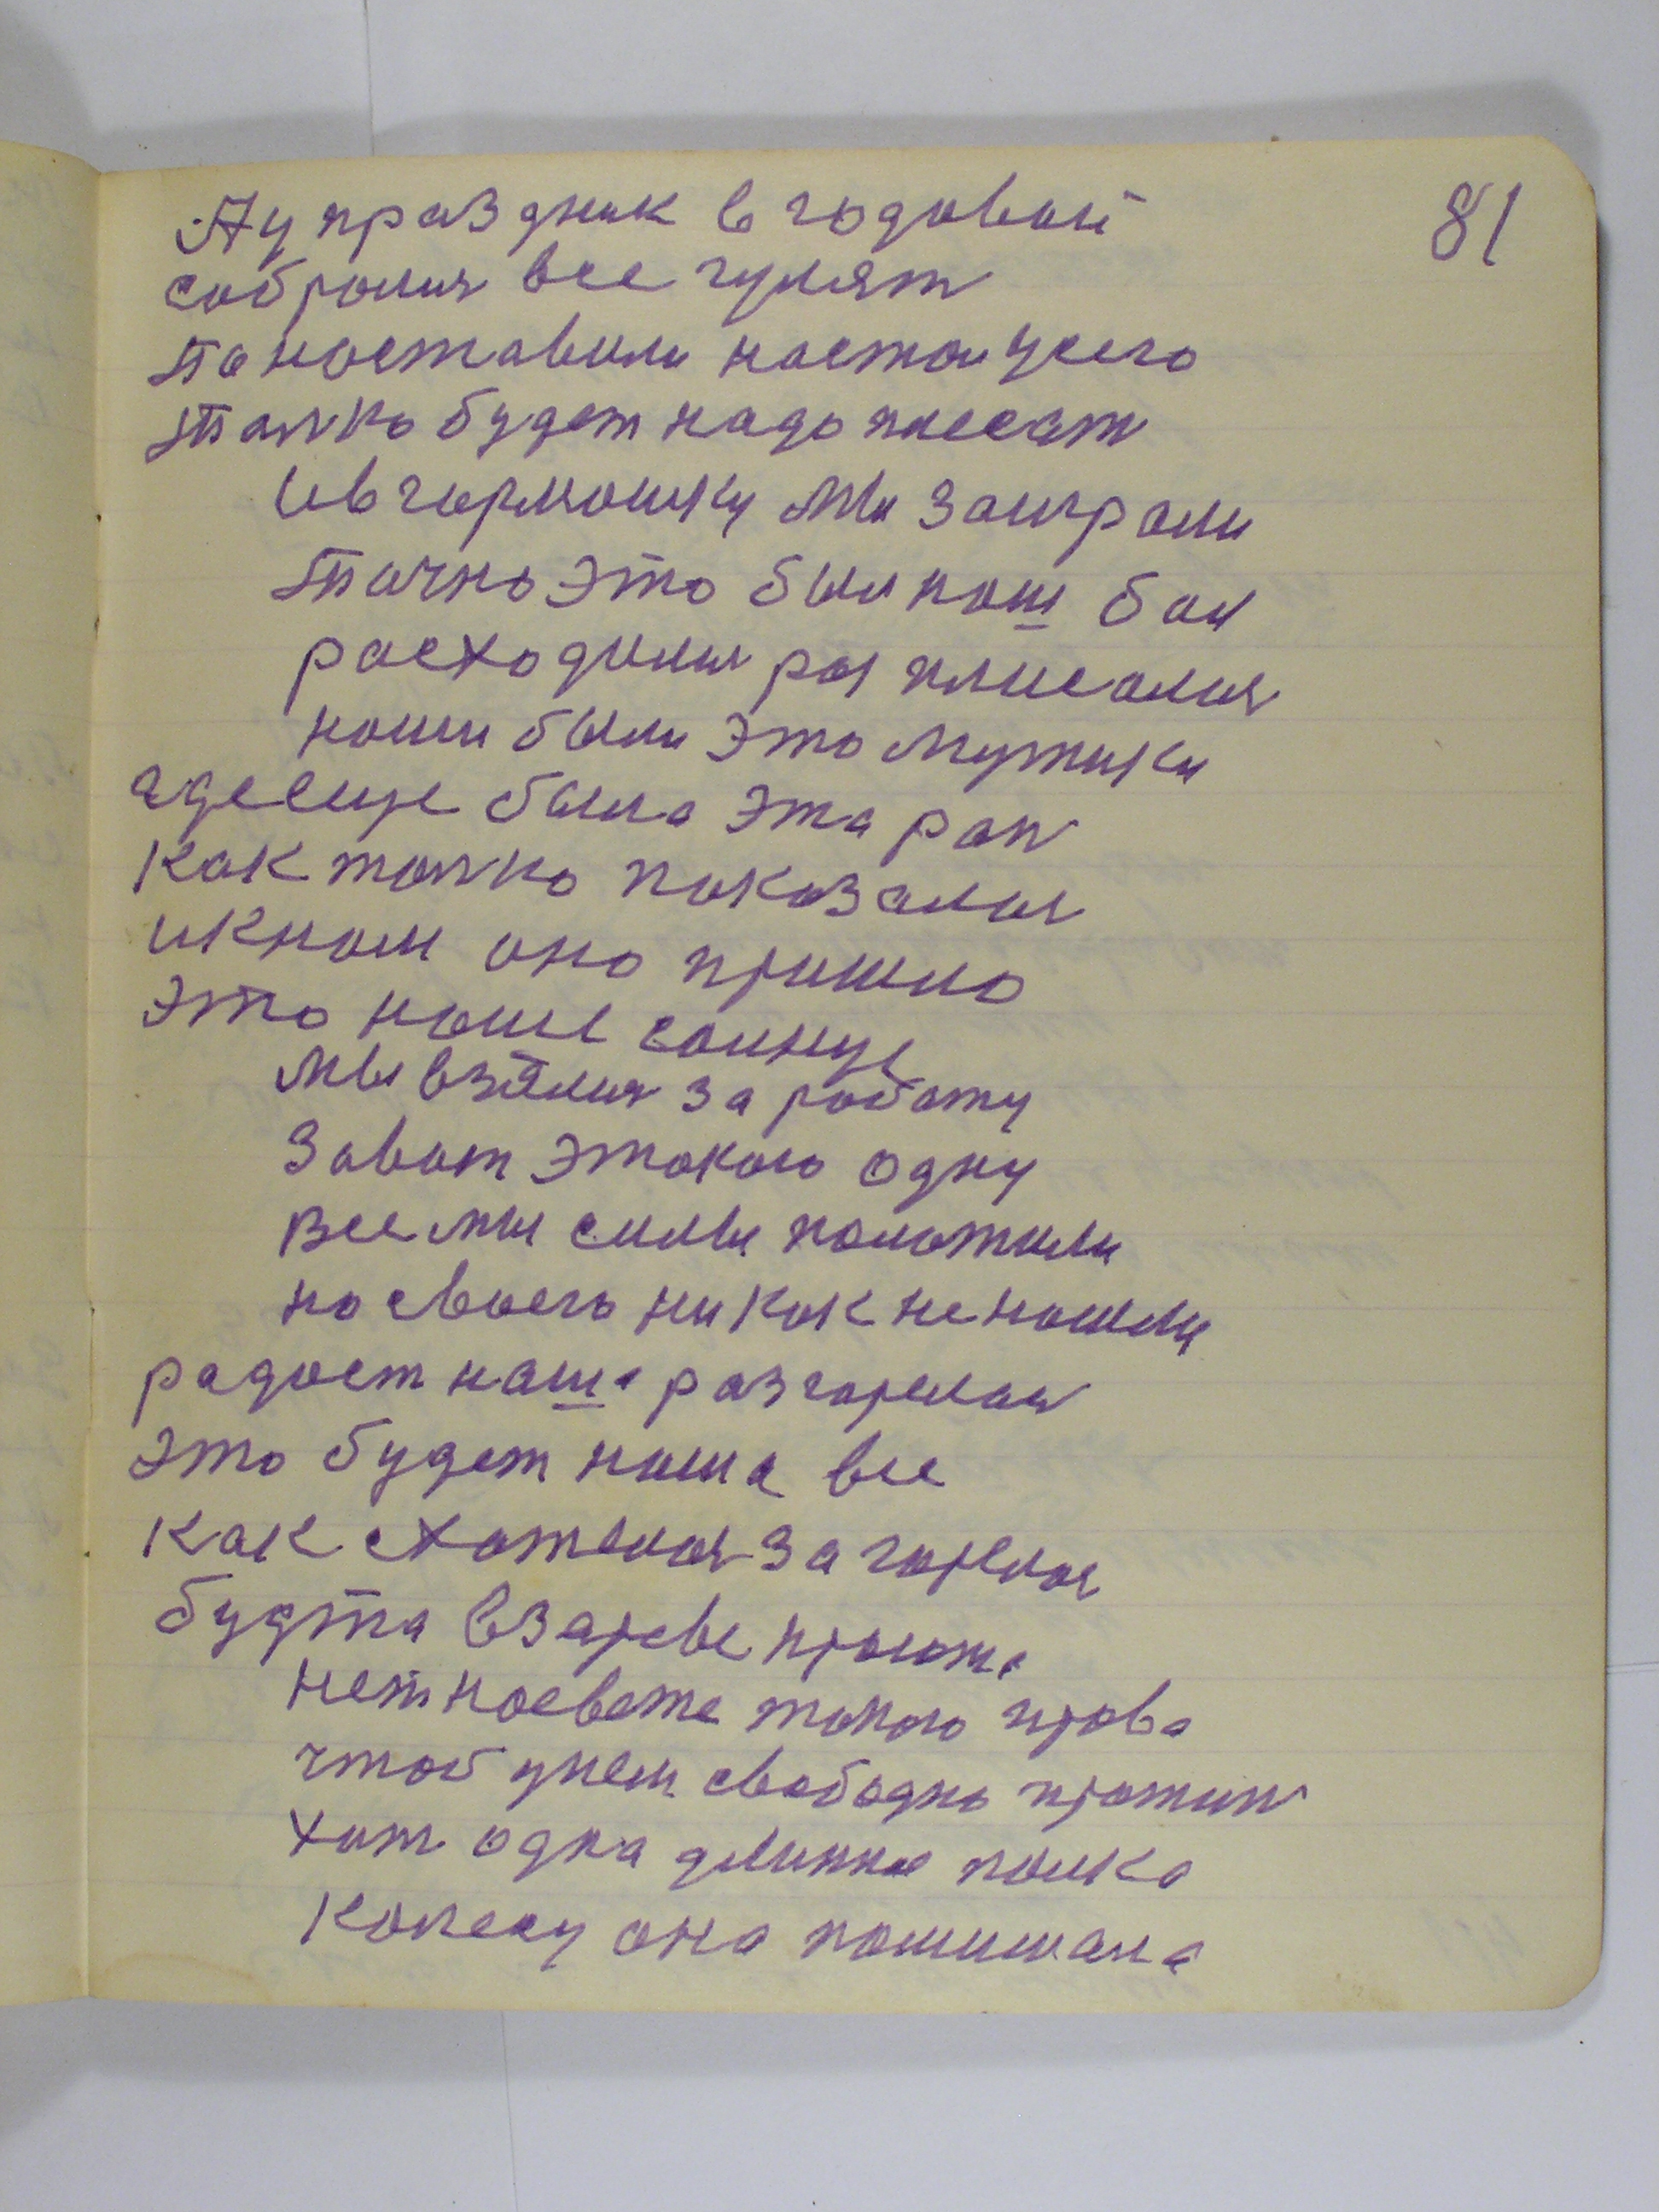 81
Ну праздник в годовой
собролия все гулят
Поноставили настоящего
Толко будет надо плесат
Ив гормошку мы заиграли
Точно это был наш бал
расходилия рыплисалия
наши были это мужики
аделще была эта
как толко показалоя
икнам оно пришло
Это наше солнце
мы взялия за работу
Завот этокого одну
все мы силы положили
но своего никак ненашли
радост наша разгорелоя
это будет наша все
как схотелоя загорелоя
будта взареве
нет насвете токого права
чтоб унем свабодно прожит
Хот одна длинная полка
она